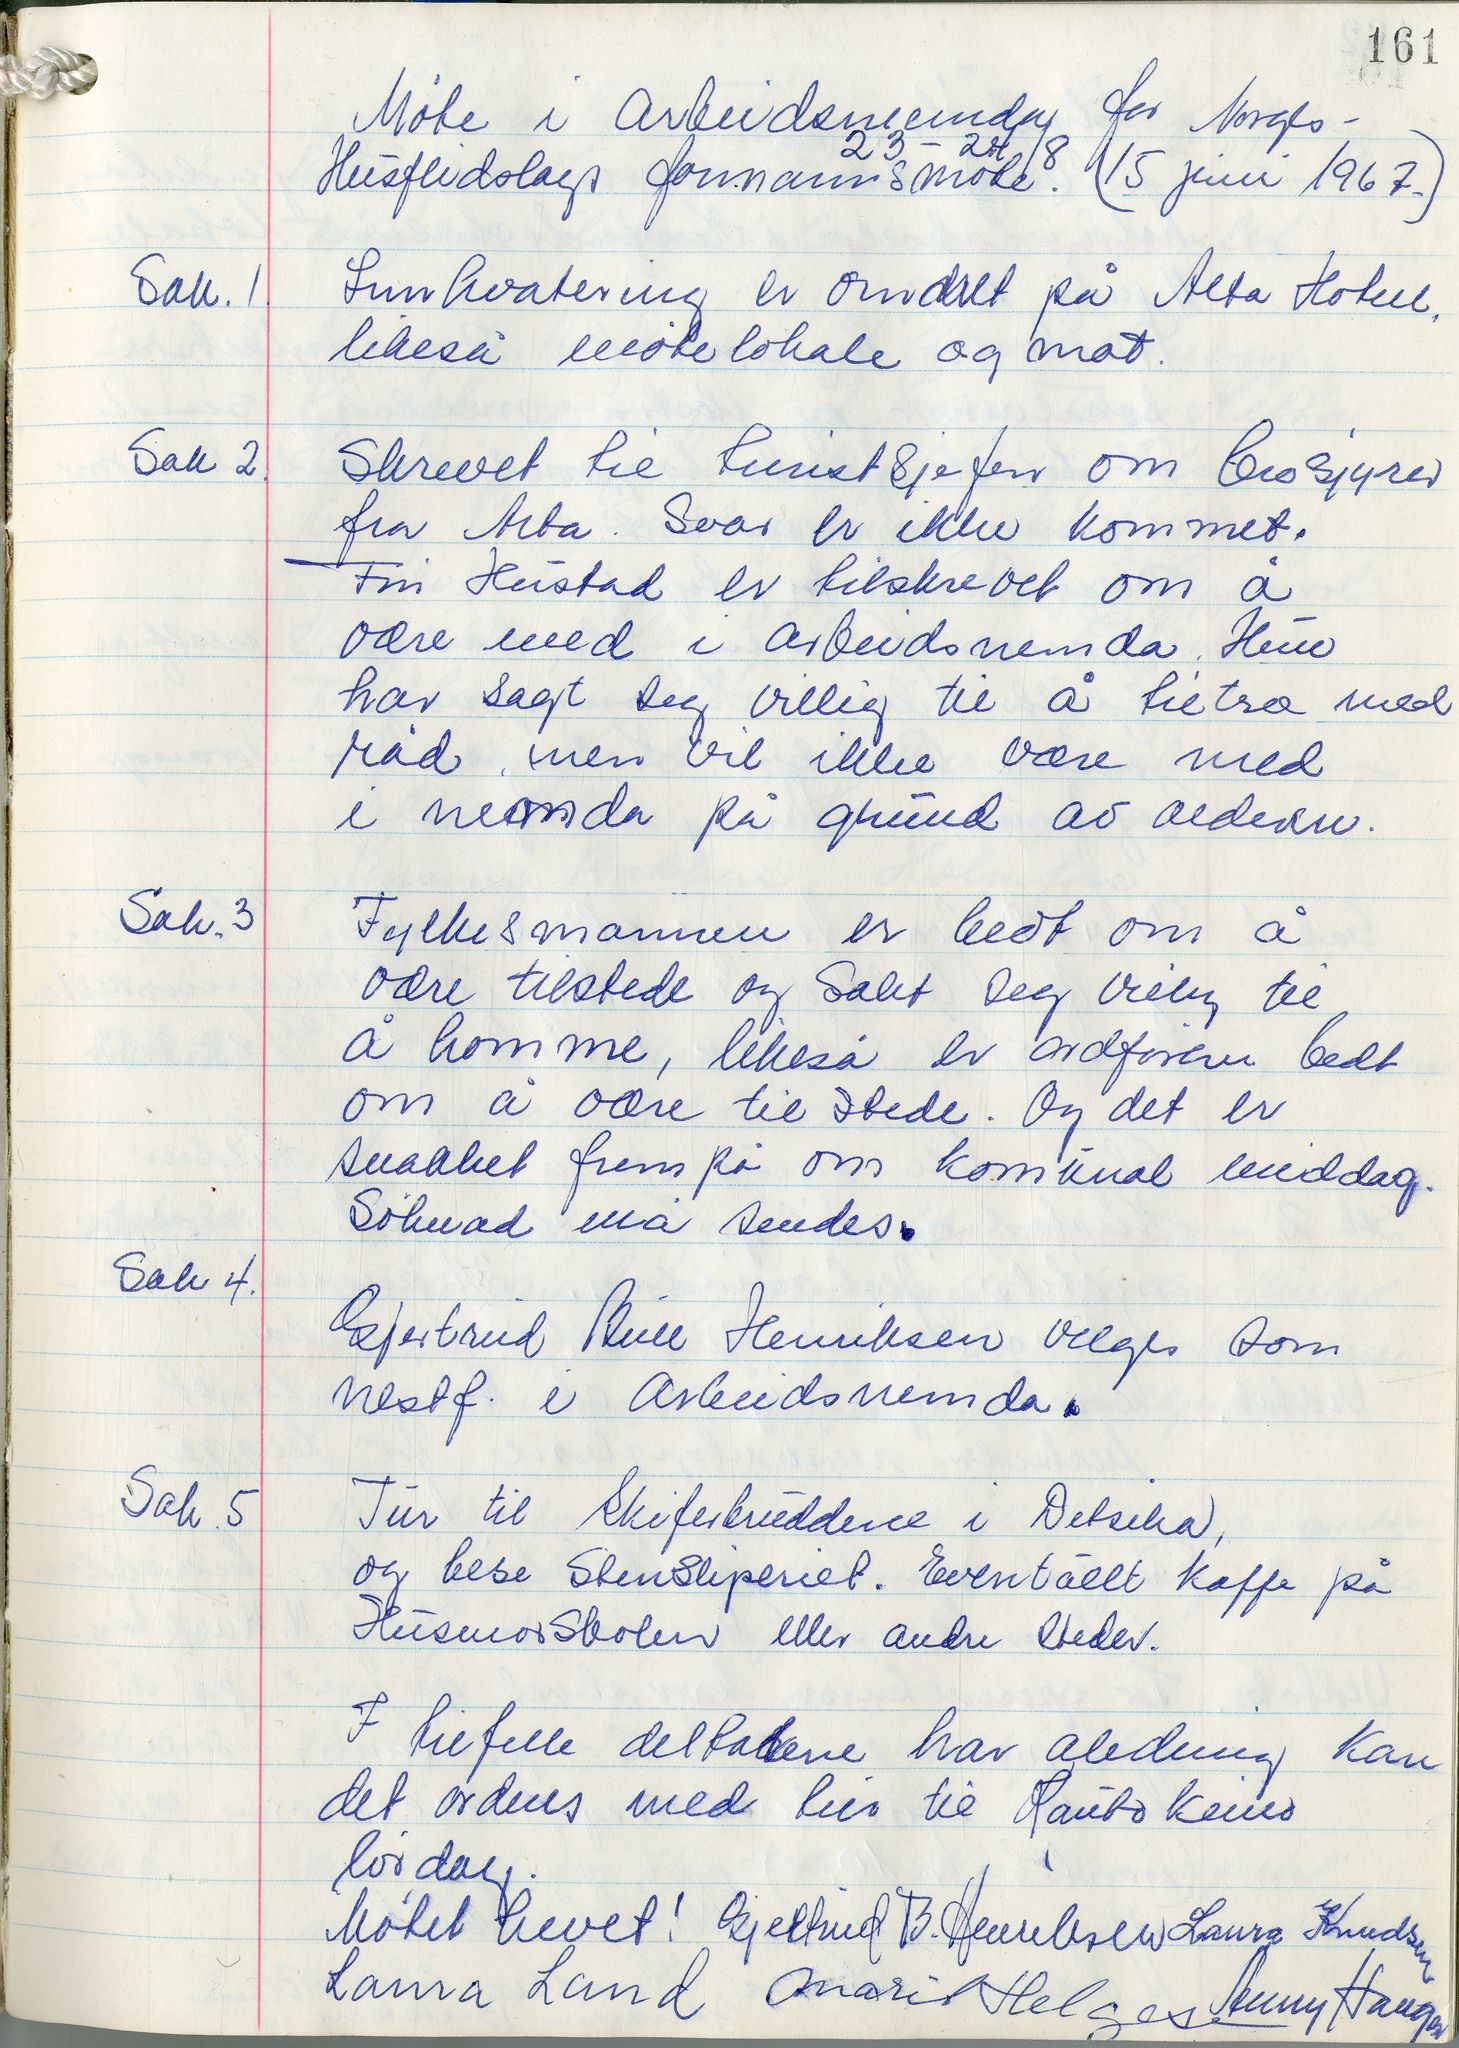 161
Möte i arbeidsnemnda for Norges-
23-24/8
Husflidslags formannsmöte. (15 juni 1967.)
Sak. 1. Innkvatering er ordnet på Alta Hotell,
likeså mötelokale og mat.
Sak 2. Skrevet til turistsjefen om brosjyrer
fra Alta. Svar er ikke kommet.
Fru Hustad er tilskrevet om å
være med i arbeidsnemda. Hun
har sagt seg villig til å tiltræ med
råd, men vil ikke være med
i nemnda på grund av alderen.
Sak. 3 Fylkesmannen er bedt om å
være tilstede og sakt seg villig til
å komme, likeså er ordföreren bedt
om å være til stede. Og det er
snakket frempå om komunal middag.
Söknad må sendes.
Sak 4.
Gjertrud Bull Henriksen velges som
nestf. i arbeidsnemda.
Sak. 5 Tur til Skiferbruddene i Detsika,
og bese Stensliperiet. Eventuellt kaffe på
Husmorskolen eller andre steder.
I tilfelle deltakerne har anledning kan
det ordnes med tur til Kautokeino
lördag.
Mötet hevet! Gjertrud B. Henriksen Laura Knudsen
Laura Lund Marit Helges Anny Haugen